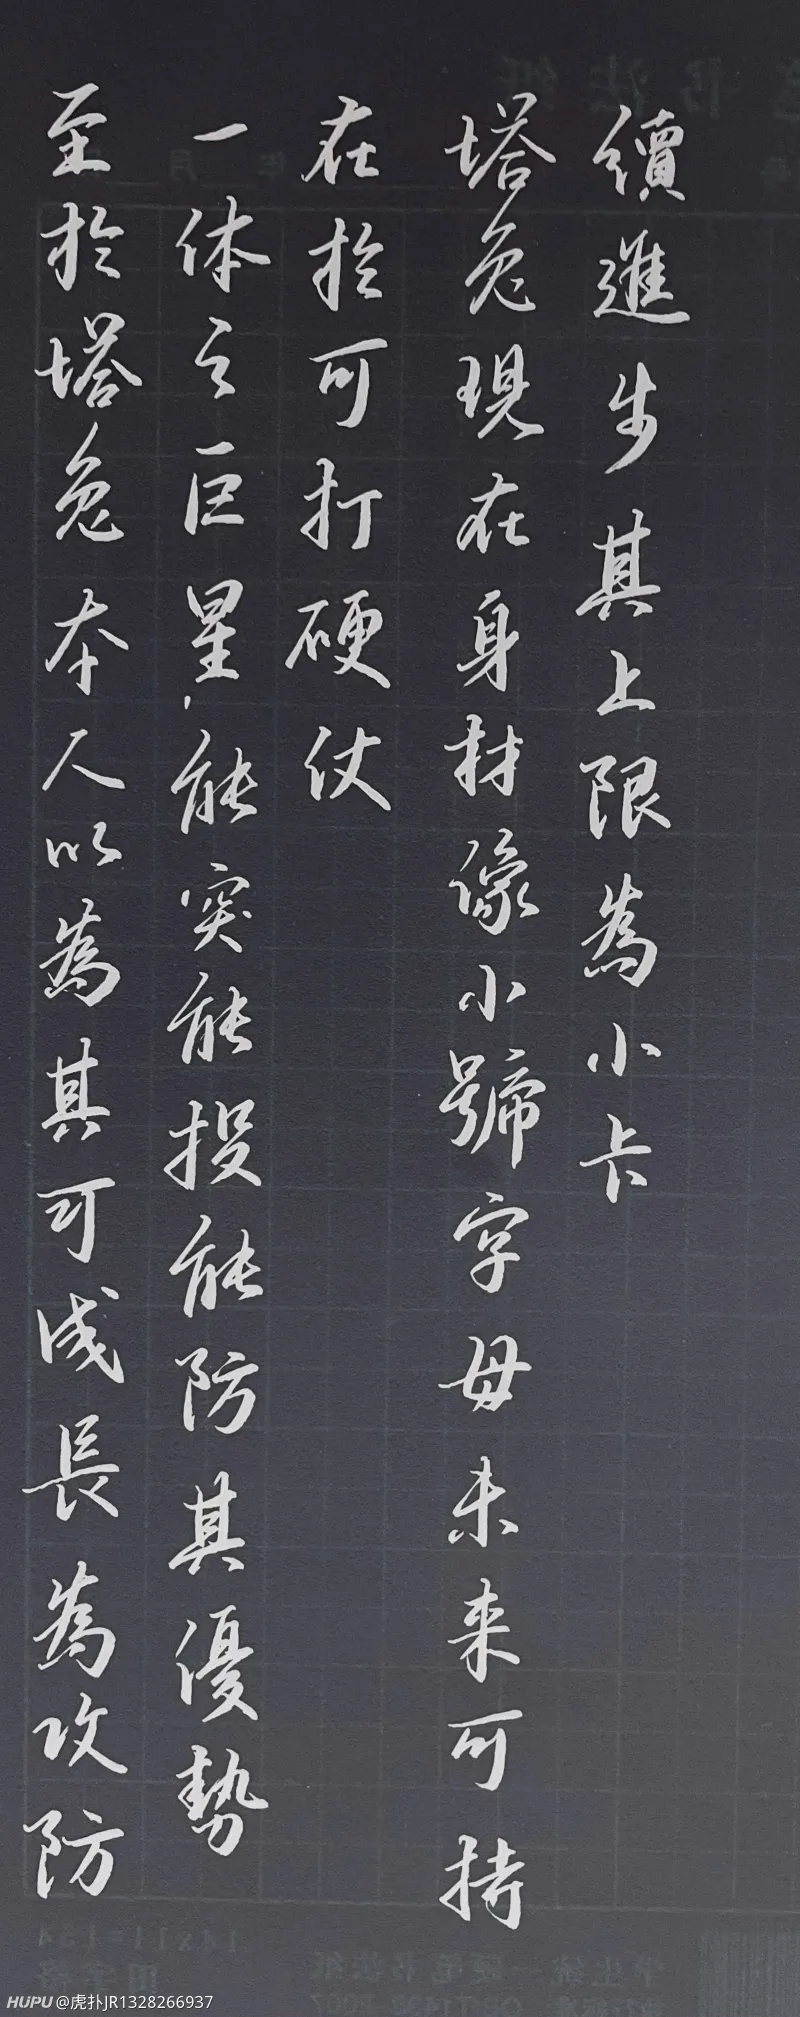 至於塔兔本人以為其可成長為攻防
一体之巨星,能突能投能防其優勢
在於可打硬仗
塔兔現在身材像小號字母未来可持
續進步其上限為小卡
HUPU @虎扑JR1328266937